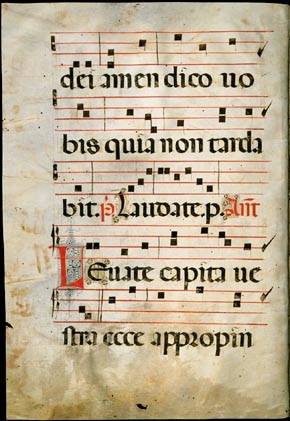 dei amen dico uo
bis quia non tarda
bit. p̄s Laudate.p. Ant̄
LEuate capita ue
stra ecce appropin